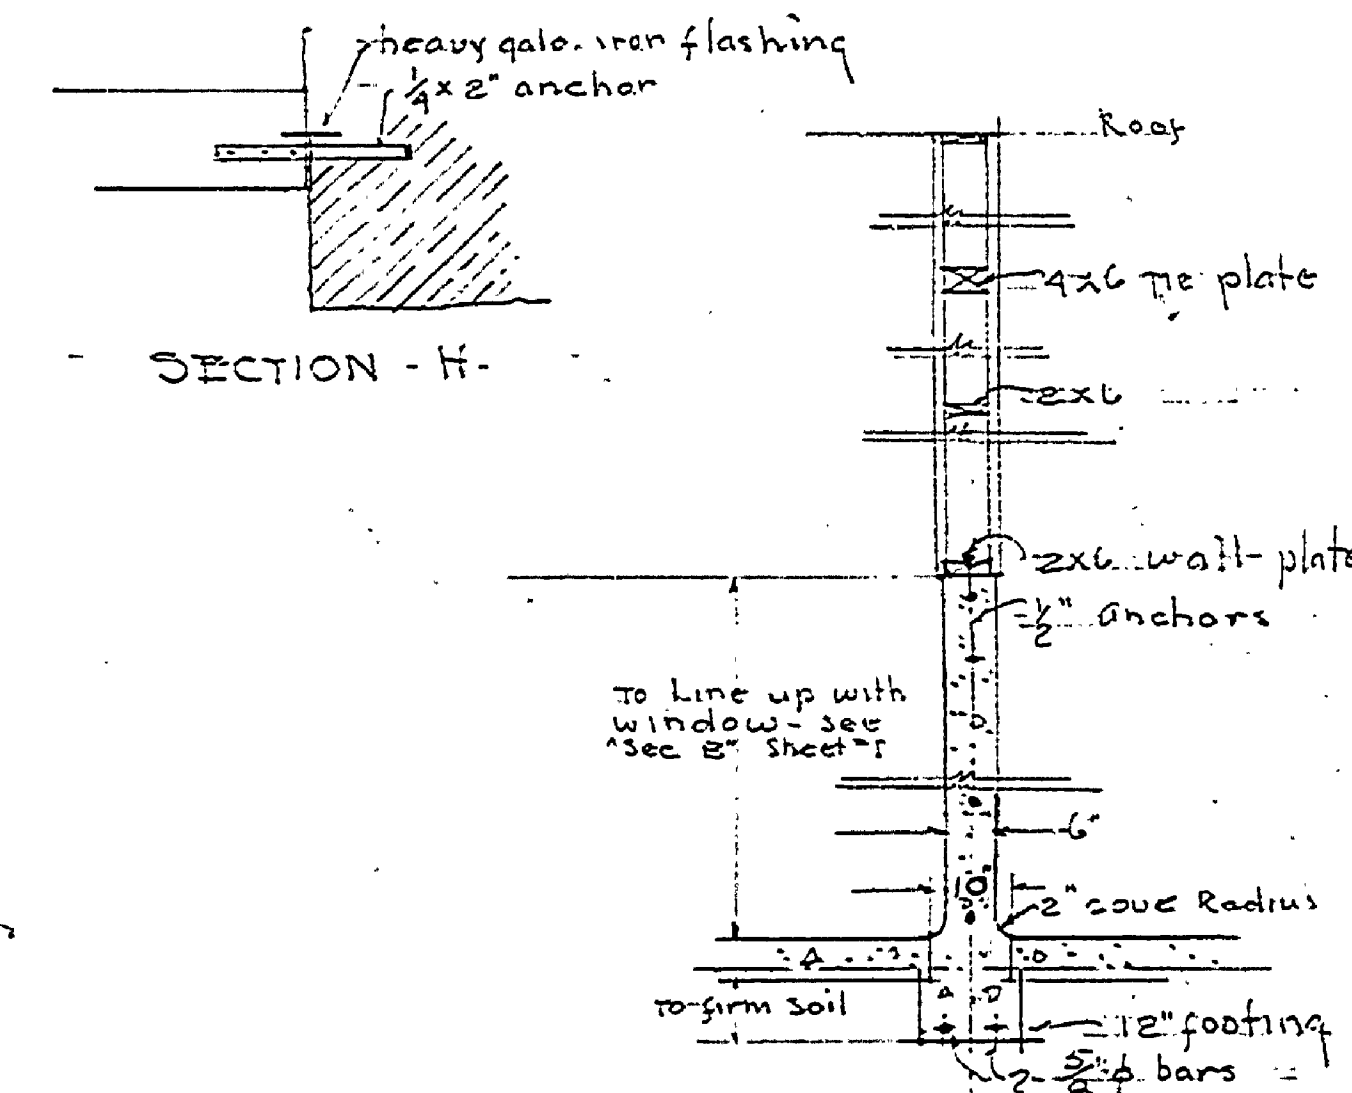 heavy galv. iron flashing
1/4 x 2" anchor
SECTION - H-
Roof
4x6 Tie plate
2x6
2x6 wall plate
1/2" anchors
To Line up with
window - see
"Sec B" Sheet
6"
10"
2" cove Radius
To firm soil
12" footing
2 - 5/8" ϕ bars